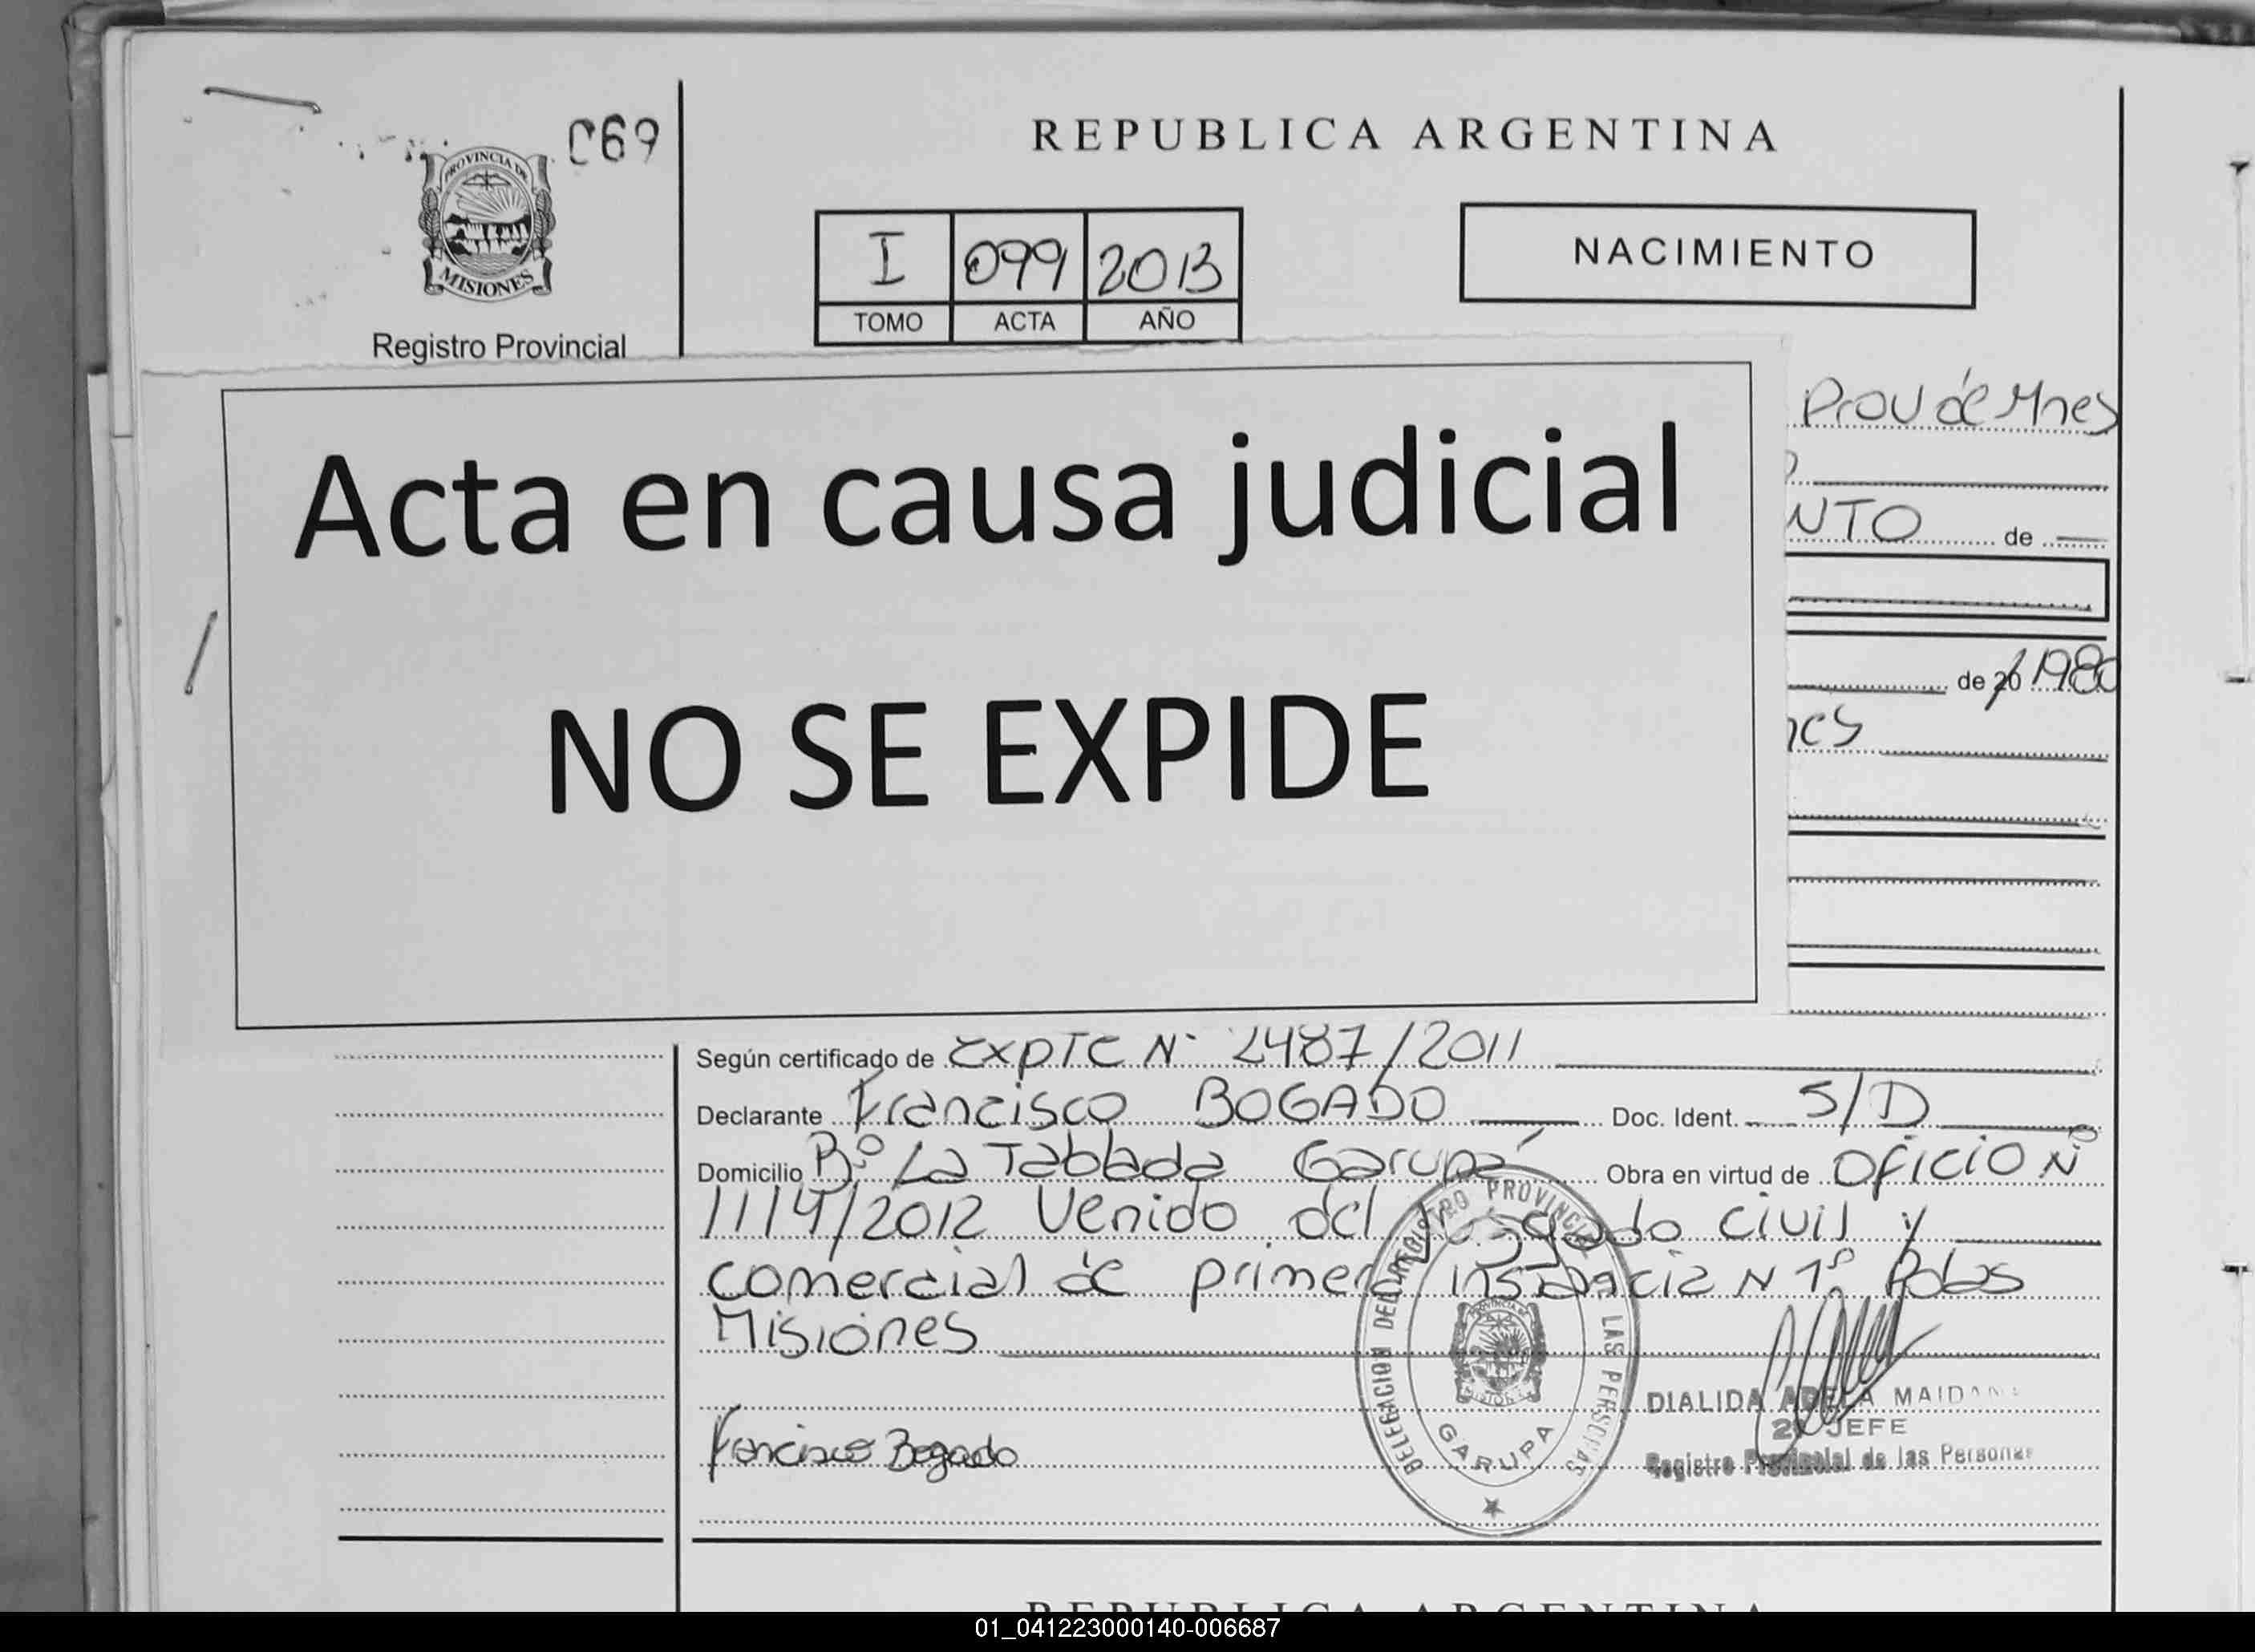 C69
REPUBLICA ARGENTINA
PROVINCIA DE
MISIONES
Registro Provincial
I 099 2013
TOMO ACTA AÑO
NACIMIENTO
Prov de Mnes
Acta en causa judicial
NTO de
NO SE EXPIDE
de 20 1980
nes
Según certificado de Expte N° 2487/2011
Declarante Francisco BOGADO Doc. Ident. S/D
Domicilio B° La Tablada Garupá Obra en virtud de Oficio N°
1114/2012 Venido del Juzgado civil y
comercial de primera instancia N 1° Pdas
Misiones
DELEGACION DEL REGISTRO PROVINCIAL LAS PERSONAS
GARUPA
DIALIDA ADELA MAIDANA
JEFE
Registro Provincial de las Personas
Francisco Bogado
REPUBLICA ARGENTINA
01_041223000140-006687